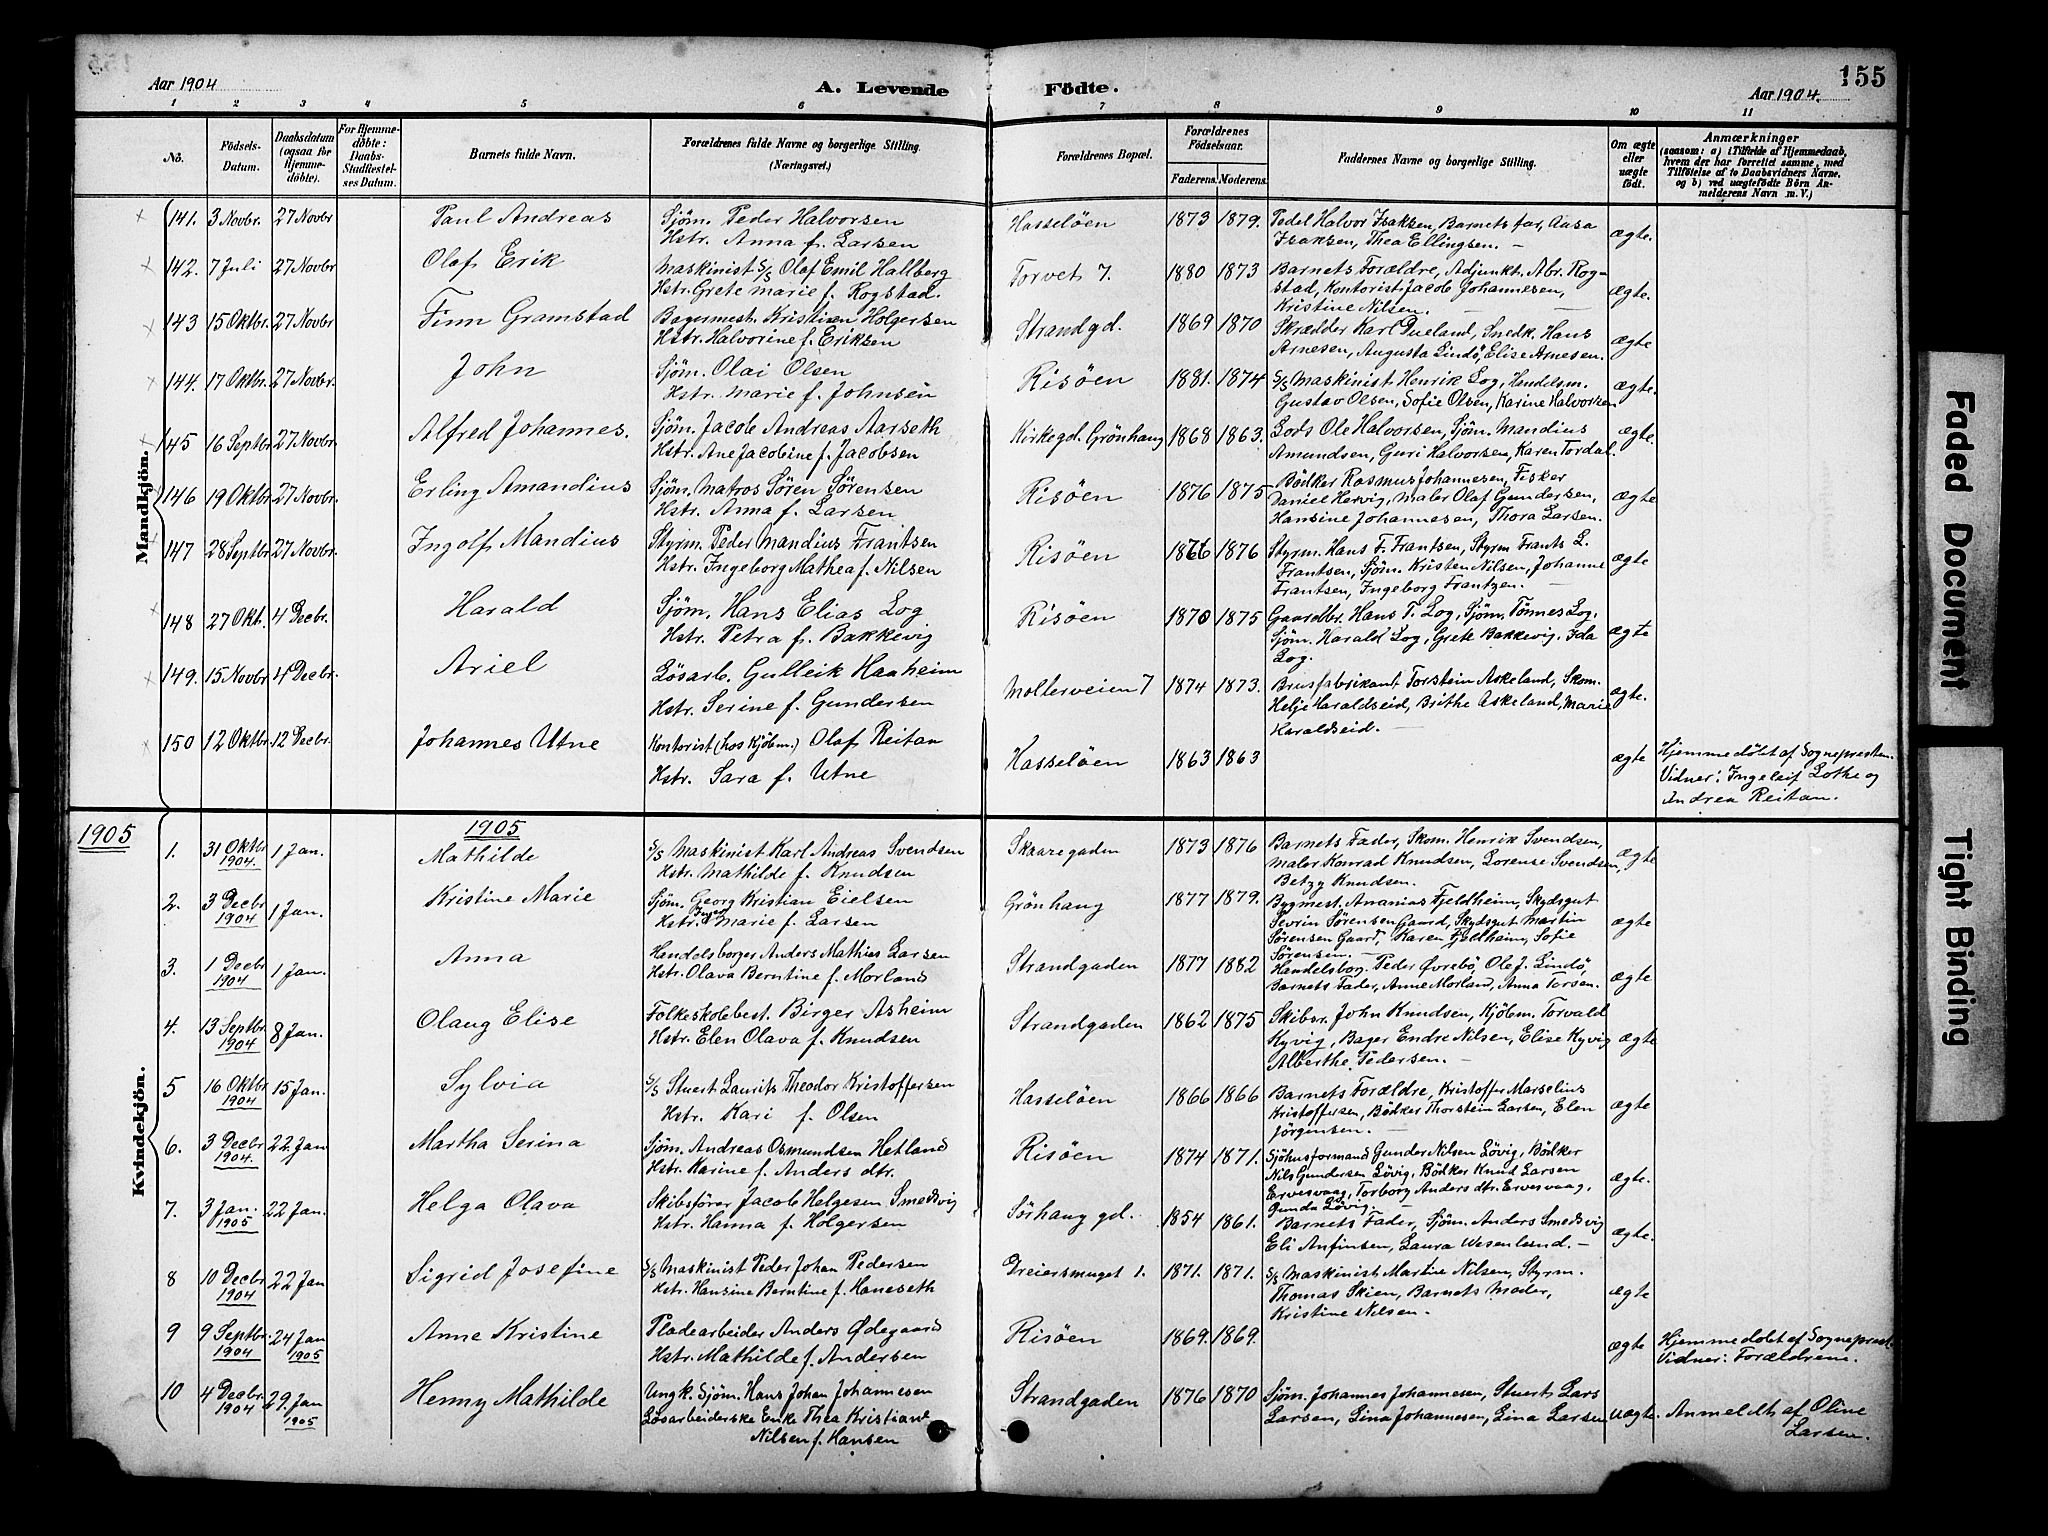 Aar 1904
A. Levende Födte.
Aar 1904.
155
1 2 3 4 5 6 7 8 9 10 11
No.
Födsels-Datum.
Daabsdatum (ogsaa for Hjemme-döbte).
For Hjemme-döbte: Daabs-Stadfæstel-ses Datum.
Barnets fulde Navn.
Forældrenes fulde Navne og borgerlige Stilling. (Næringsvei.)
Forældrenes Bopæl.
Forældrenes Födselsaar.
Faderens. Moderens.
Faddernes Navne og borgerlige Stilling.
Om ægte eller uægte födt.
Anmærkninger
(saasom: a) i Tilfælde af Hjemmedaab, hvem der har forrettet samme, med Tilföielse af to Daabsvidners Navne. og b) ved uægtefödte Börn An-melderens Navn m. V.)
Mandkjön.
141. 3 Novbr. 27 Novbr Paul Andreas Sjöm. Peder Halvorsen Hasselöen 1873 1879. Pedel Halvor Isaksen, Barnets far, Aasa ægte.
Hstr. Anna f. Larsen Isaksen, Thea Ellingsen. –
142. 7 Juli 27 Novbr Olaf Erik Maskinist S/S Olaf Emil Hallberg Torvet 7. 1880 1873 Barnets Forældre, Adjunkt. Abr. Rog-
Hstr. Grete Marie f. Rogstad. stad, Kontorist Jacob Johannesen, ægte.
Kristine Nilsen. –
143 15 Oktbr. 27 Novbr Finn Gramstad Bagermest. Kristian Holgersen Strandgd. 1869 1870 Skrædder Karl Dueland, Snedk. Hans ægte
Hstr. Halvorine f. Eriksen Arnesen, Augusta Lindö, Elise Arnesen.
144. 17 Oktbr. 27 Novbr. John Sjöm. Olai Olsen Risöen 1881. 1874 S/S Maskinist Henrik Log, Handelsm. ægte.
Hstr. Marie f. Johnsen Gustav Olsen, Sofie Olsen, Karine Halvorsen
145 16 Septbr 27 Novbr. Alfred Johannes. Sjöm. Jacob Andreas Aarseth Kirkegd. Grönhaug 1868 1863. Lods Ole Halvorsen, Sjöm. Mandius ægte.
Hstr. Ane Jacobine f. Jacobsen Amundsen, Guri Halvorsen, Karen Tordal.
146 19 Oktbr 27 Novbr. Erling Amandius Sjöm. Matros Sören Sörensen Risöen 1876 1875 Bödker Rasmus Johannesen, Fisker
Hstr. Anna f. Larsen Daniel Hervig, Maler Olaf Gundersen, ægte
Hansine Johannesen, Thora Larsen.
147 28 Septbr 27 Novbr. Ingolf Mandius Styrm. Peder Mandius Frantsen Risöen 1876 Styrm. Hans F. Frantsen, Styrm Frants L. ægte
Hstr. Ingeborg Mathea f. Nilsen Frantsen, Sjöm. Kristen Nilsen, Johanne
Frantsen, Ingeborg Frantzen. –
148 27 Okt. 4 Decbr. Harald Sjöm. Hans Elias Log Risöen 1870 1875 Gaardbr. Hans T. Log, Sjöm. Tönnes Log.
Hstr. Petra f. Bakkevig Sjöm. Harald Log, Grete Bakkevig, Ida ægte
Log.
149. 15 Novbr 4 Decbr. Ariel Lösarb. Gulleik Haaheim Mollerveien 7 1874 1873. Brusfabrikant Torstein Askeland, Skom. ægte.
Hstr. Serine f. Gundersen Helje Haraldseid, Brithe Askeland, Marie
Haraldseid. –
150 12 Oktbr. 12 Decbr. Johannes Utne Kontorist (hos Kjöbm.) Olaf Reitan Hasselöen 1863 1863 ægte Hjemmedöbt af Sognepresten.
Hstr. Sara f. Utne Vidner: Ingeleif Lothe og
Andrea Reitan.
1905
1905
Kvindekjön.
1. 31 Oktbr 1904. 1 Jan. Mathilde S/S Maskinist Karl Andreas Svendsen Skaaregaden 1873 1876 Barnets Fader, Skom. Henrik Svendsen, ægte
Hstr. Mathilde f. Knudsen Maler Konrad Knudsen, Lorense Svendsen,
Betzy Knudsen.
2. 3 Decbr 1904 1 Jan. Kristine Marie Sjöm. Georg Kristian Eielsen Grönhaug 1877 1879. Bygmest. Ananias Fjeldheim, Skydsgut
Hstr. Inger Marie f. Larsen Sevrin Sörensen Gaard, Skydsgut Martin ægte
Sörensen Gaard, Karen Fjeldheim, Sofie
Sörensen. –
3. 1 Decbr 1904 1 Jan. Anna Handelsborger Anders Mathias Larsen Strandgaden 1877 1882 Handelsborg. Peder Øvrebö, Ole J. Lindö, ægte
Hstr. Olava Berntine f. Morland Barnets Fader, Anne Morland, Anna Torsen.
4. 13 Septbr 1904 8 Jan. Olaug Elise Folkeskolebest. Birger Asheim Strandgaden 1862 1875 Skibsr. John Knudsen, Kjöbm. Torvald ægte
Hstr. Elen Olava f. Knudsen Kyvig, Bager Endre Nilsen, Elise Kyvig
Alberthe Pedersen. –
5 16 Oktbr 1904 15 Jan. Sylvia S/S Stuert Laurits Theodor Kristoffersen Hasselöen 1866 1866 Barnets Forældre, Kristoffer Marselius ægte
Hstr. Kari f. Olsen Kristoffersen, Bödker Thorstein Larsen, Elen
Jörgensen. –
6. 3 Decbr 1904. 22. Jan Martha Serina Sjöm. Andreas Osmundsen Hetland Risöen 1874 1871. Sjöhusformand Gunder Nilsen Lövig, Bödker
Hstr. Karine f. Anders dtr. Nils Gundersen Lövig, Bödker Knud Larsen ægte.
Ervesvaag, Torborg Anders dtr. Ervesvaag,
Gunda Lövig. –
7. 3 Jan. 1905 22 Jan. Helga Olava Skibsförer Jacob Helgesen Smedsvig Sörhaug gd. 1854 1861. Barnets Fader, Sjöm. Anders Smedsvig ægte.
Hstr. Hanna f. Holgersen Eli Anfinsen, Laura Wesenlund. –
8 10 Decbr 1904 22 Jan Sigrid Josefine S/S Maskinist Peder Johan Pedersen Dreiersmuget 1. 1871. 1871. S/S Maskinist Martine Nilsen, Styrm.
Hstr. Hansine Berntine f. Haneseth Thomas Skien, Barnets Moder, ægte
Kristine Nilsen.
9 9 Septbr. 1904 24 Jan 1905 Anne Kristine Pladearbeider Anders Ødegaard Risöen 1869. 1869. ægte Hjemmedöbt af Sogneprest.
Hstr. Mathilde f. Andersen Vidner: Forældrene.
10 4 Decbr 1904 29. Jan 1905 Henny Mathilde Ungk. Sjöm. Hans Johan Johannesen Strandgaden 1876 1870 Sjöm. Johannes Johannesen, Stuert Lars
Lösarbeiderske Enke Thea Kristiane Larsen, Lina Johannesen, Lina Larsen uægte. Anmeldt af Oline
Nilsen f. Hansen Larsen.
Faded Document
Tight Binding